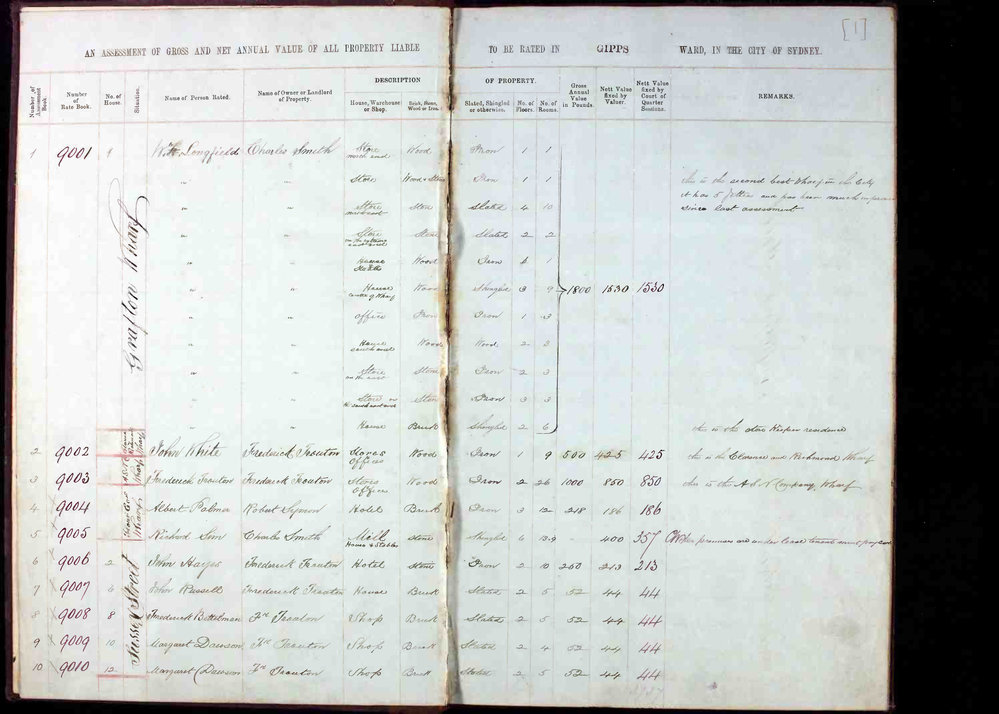 [1]
AN ASSESSMENT OF GROSS AND NET ANNUAL VALUE OF ALL PROPERTY LIABLE TO BE RATED IN GIPPS WARD, IN THE CITY OF SYDNEY.
DESCRIPTION OF PROPERTY.
Number of Assessment Book. Number of Rate Book. No. of House. Situation. Name of Person Rated. Name of Owner or Landlord of Property. House, Warehouse or Shop. Brick, Stone, Wood or Iron. Slated, Shingled or otherwise. No. of Floors. No. of Rooms. Gross Annual Value in Pounds. Nett Value fixed by Valuer. Nett Value fixed by Court of Quarter Sessions. REMARKS.
Grafton Wharf
1 9001 9 W. H. Longfield Charles Smith Store north end Wood Iron 1 1
" " Store Wood & Stone Iron 1 1 this is the second best Wharf in the City
it has 5 Jetties and has been much improved
" " Store Stone Slated 4 10 since last assessment
" " Store Stone Slated 2 2
" " House Wood Iron 1
" " House centre of Wharf Wood Shingled 3 9 1800 1530 1530
" " Office Iron Iron 1 3
" " House south end Wood Wood 2 3
" " Store Stone Iron 2 3
" " Store Stone Iron 3 3
" " House Brick Shingled 2 6 this is the Store Keepers residence
2 9002 John White Frederick Trouton Stores Offices Wood Iron 1 9 500 425 425 this is the Clarence and Richmond Wharf
3 9003 Frederick Trouton Frederick Trouton Stores Offices Wood Iron 2 26 1000 850 850 this is the A S N Company, Wharf
4 9004 Albert Palmer Robert Symon Hotel Brick Iron 3 12 218 186 186
5 9005 Richard Sim Charles Smith Mill House & Stables Stone Shingled 6 400 357 premises are under lease
Sussex Street
6 9006 2 John Hayes Frederick Trouton Hotel Stone Iron 2 10 250 213 213
7 9007 6 John Russell Frederick Trouton House Brick Slated 2 5 52 44 44
8 9008 8 Frederick Bettelman Fre Trouton Shop Brick Slated 2 5 52 44 44
9 9009 10 Margaret Dawson Fre Trouton Shop Brick Slated 2 4 52 44 44
10 9010 12 Margaret Dawson Fre Trouton Shop Brick Slated 2 5 52 44 44